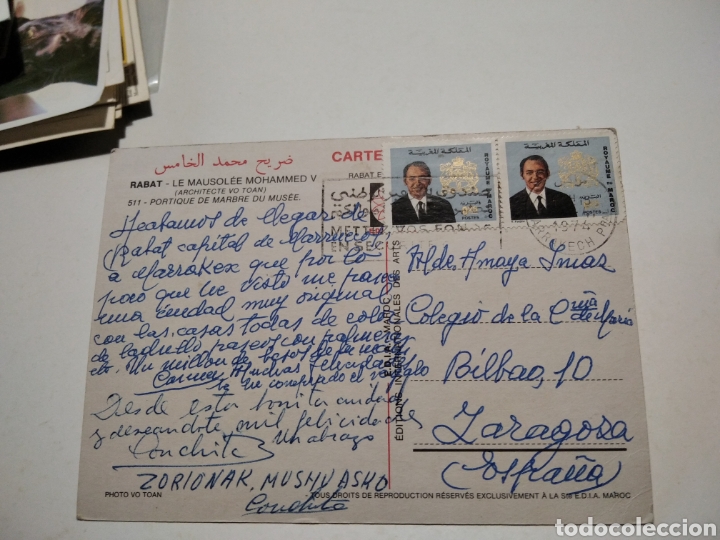 ضريح محمد الخامس
CARTE
RABAT - LE MAUSOLÉE MOHAMMED V
(ARCHITECTE VO TOAN)
511 - PORTIQUE DE MARBRE DU MUSÉE.
RABAT
المملكة المغربية
ROYAUME DU MAROC
POSTES
المملكة المغربية
ROYAUME DU MAROC
POSTES
METTEZ VOS FON
EN SECU
1974
Acabamos de llegar desde
Rabat capital de Marruecos
a Marrakex que por lo
poco que he visto me parece
una ciudad muy original
con las casas todas de color
de ladrillo paseos con palmeras
etc. Un millon de besos de
Carmen. Muchas felicidades
ya he comprado el regalo
Desde esta bonita ciudad
y deseandote mil felicidades
Un abrazo
Conchita
ZORIONAK, MUSHU ASKO
Conchita
Mlde. Amaya
Colegio de la Cñia de Maria
Bilbao, 10
Zaragoza
(España)
E.D.I.A. MAROC
ÉDITIONS INTERNATIONALES DES ARTS
PHOTO VO TOAN
TOUS DROITS DE REPRODUCTION RÉSERVÉS EXCLUSIVEMENT À LA Sté E.D.I.A. MAROC
todocoleccion